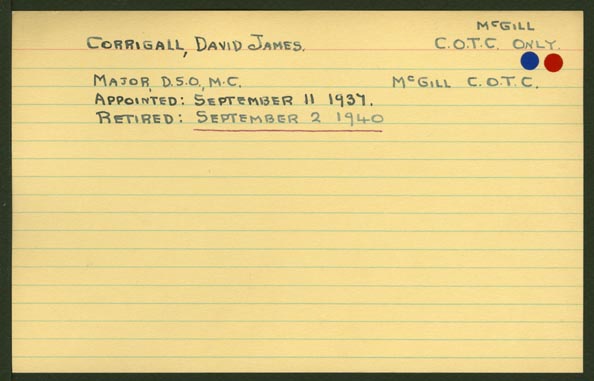 McGILL
CORRIGALL, DAVID JAMES. C.O.T.C. ONLY.
MAJOR, D.S.O., M.C. McGILL C.O.T.C.
APPOINTED: SEPTEMBER 11 1937.
RETIRED: SEPTEMBER 2 1940